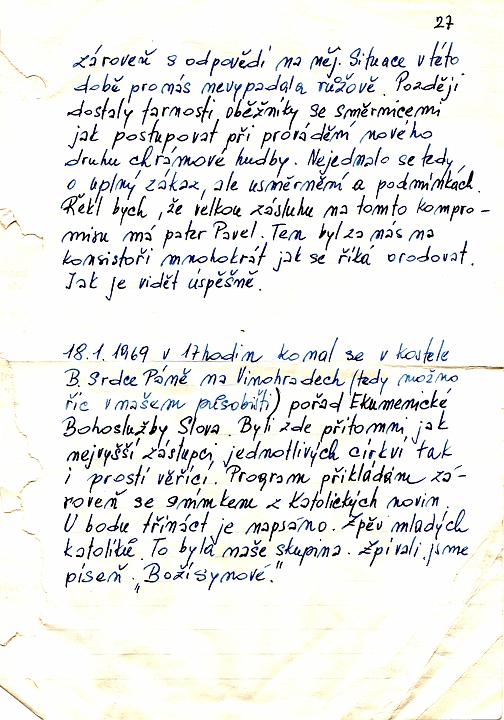 27
zároveň s odpovědí na něj. Situace v této
době pro nás nevypadala růžově. Později
dostaly farnosti oběžníky se směrnicemi
jak postupovat při provádění nového
druhu chrámové hudby. Nejednalo se tedy
o úplný zákaz, ale usměrnění a podmínkách.
Řekl bych, že velkou zásluhu na tomto kompro-
misu má páter Pavel. Ten byl za nás na
konsistoři mnohokrát jak se říká orodovat.
Jak je vidět úspěšně.
18.1.1969 v 17 hodin konal se v kostele
B. Srdce Páně na Vinohradech (tedy možno
říc v našem působišti) pořad Ekumenické
Bohoslužby Slova. Byli zde přítomni jak
nejvyšší zástupci jednotlivých církví tak
i prostí věřící. Program přikládám zá-
roveň se snímkem z Katolických novin
V bodu třináct je napsáno. Zpěv mladých
katolíků. To byla naše skupina. Zpívali jsme
píseň "Boží synové."